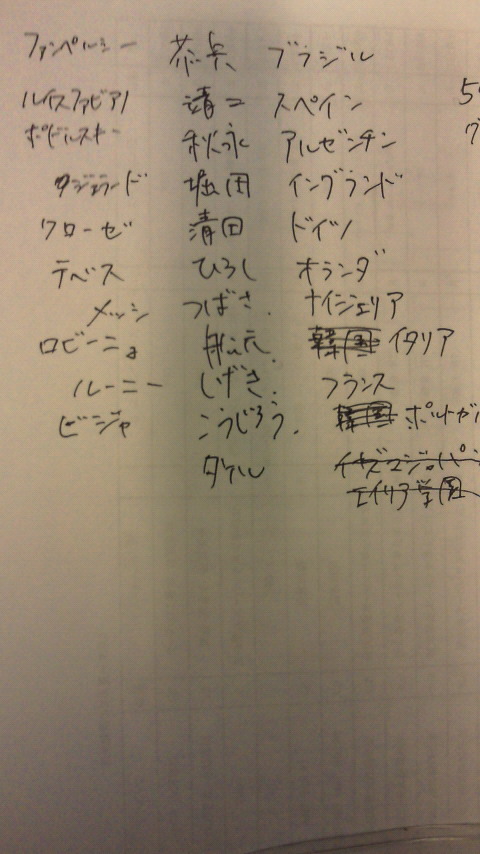 ファンペルシー 茶兵 ブラジル
ルイスファビアノ 靖二 スペイン
ポドルスキー 秋永 アルゼンチン
ダジェラード 堀田 イングランド
クローゼ 清田 ドイツ
テベス ひろし オランダ
メッシ つばさ. ナイジェリア
ロビーニョ 韓国 イタリア
ルーニー しげき. フランス
ビージャ こうじろう. 韓国 ポルトガル
タケル イナズマジャパン
エイリア学園